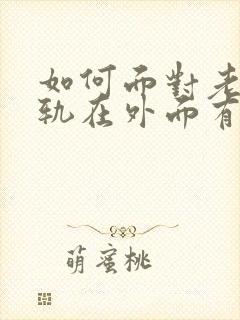 如何面對老
軌在外面有
萌蜜桃